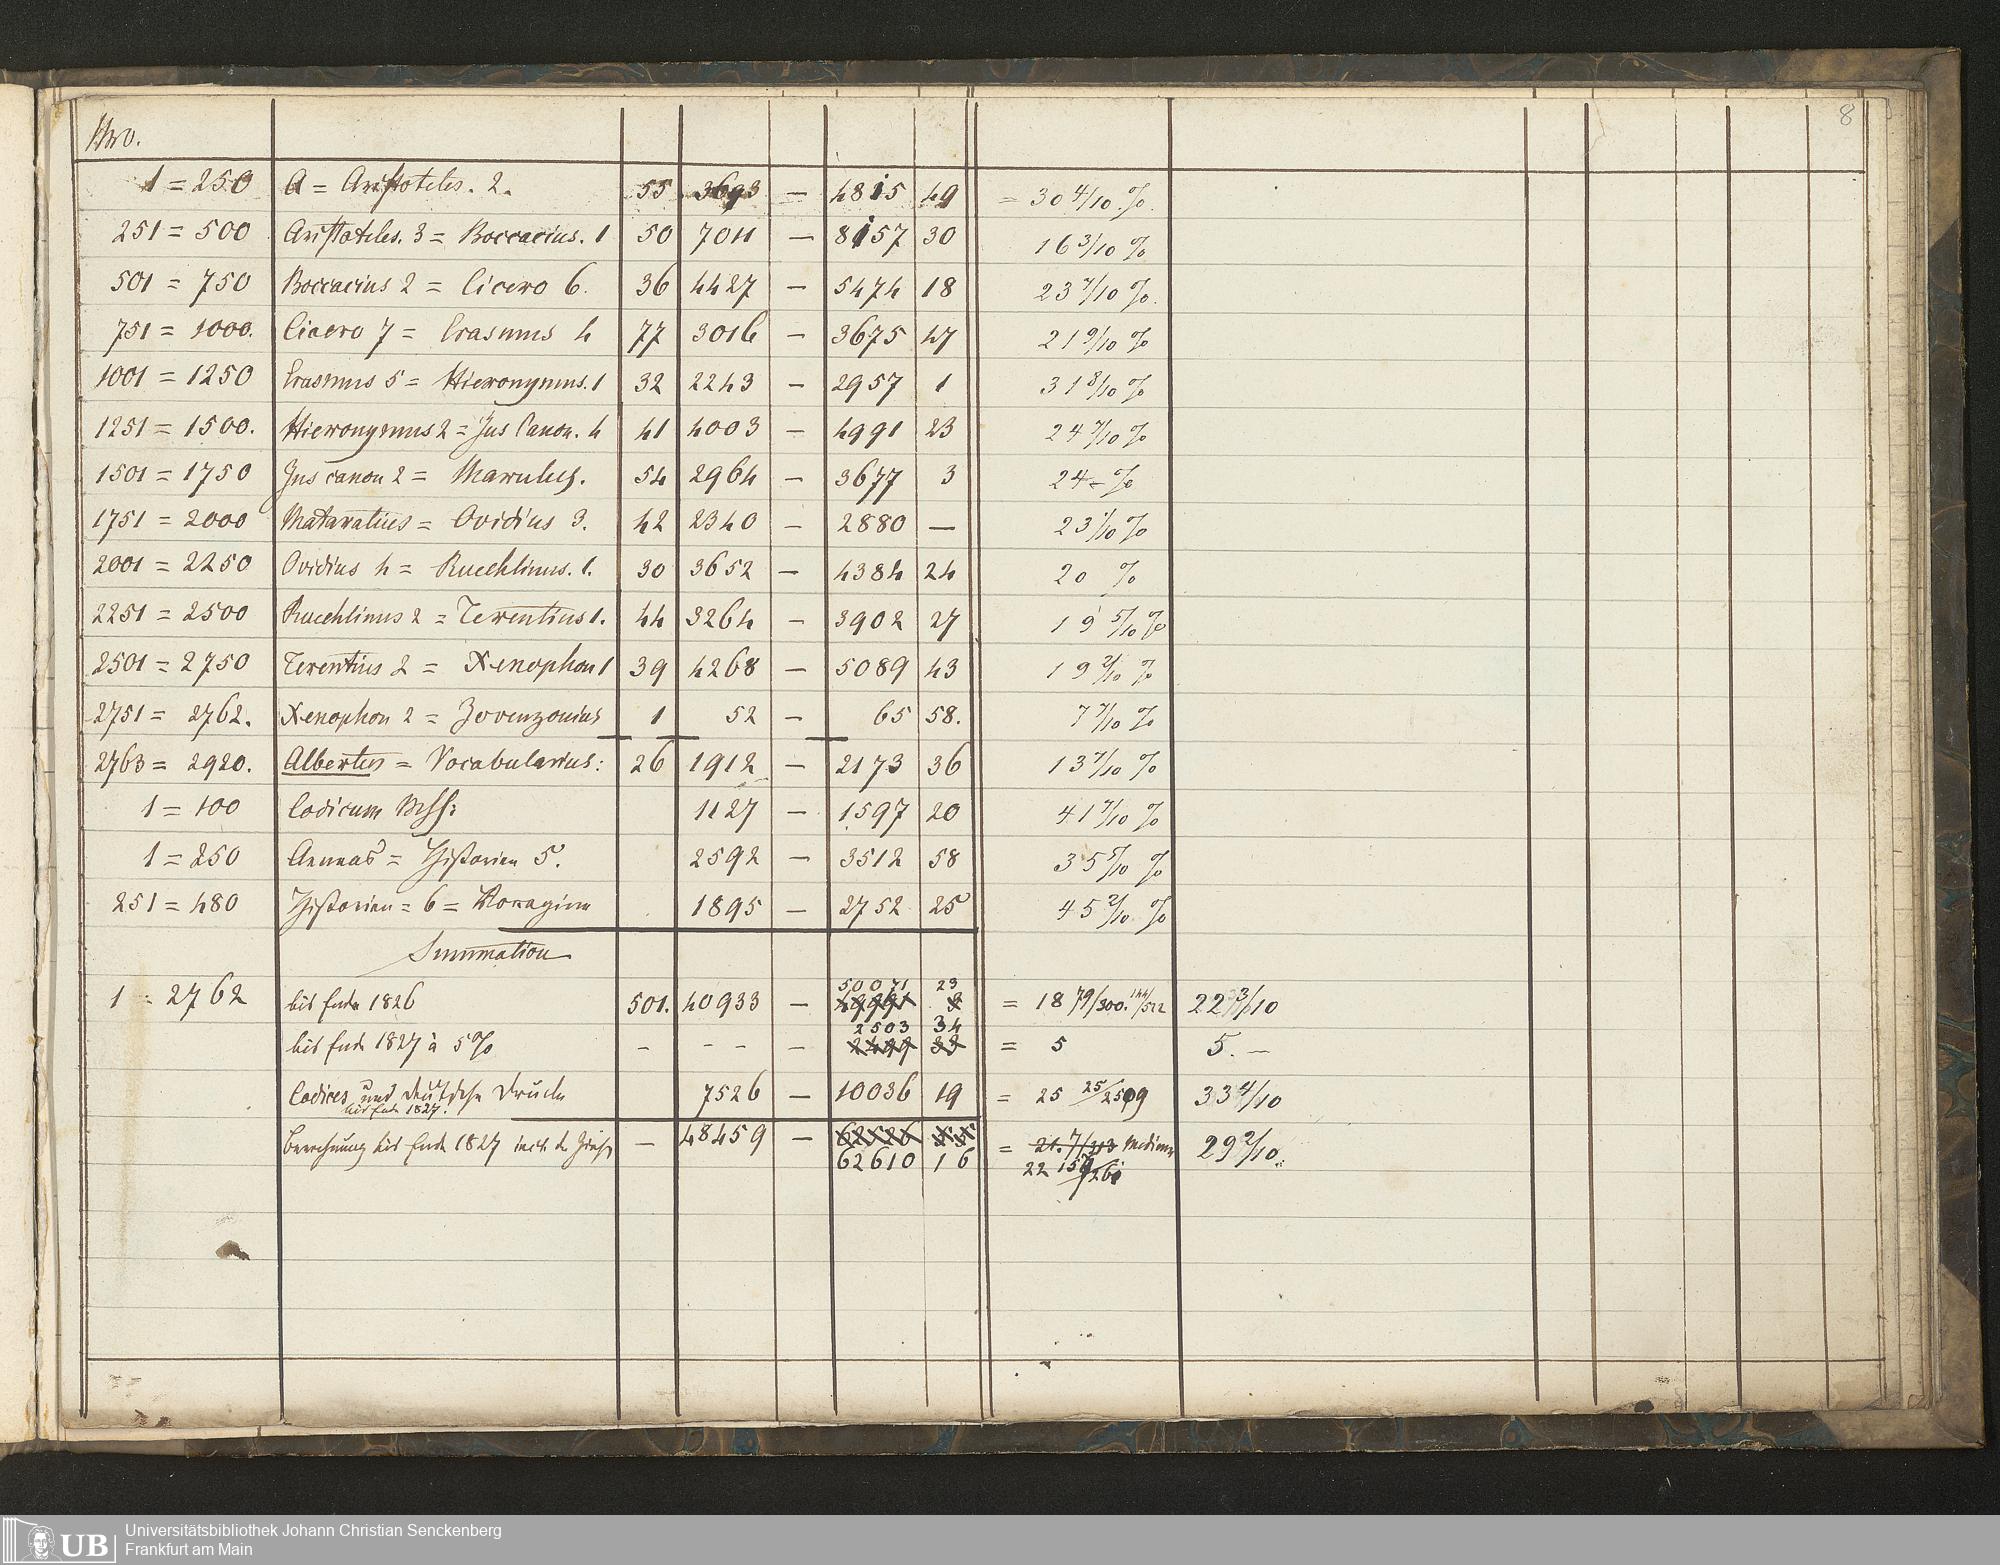 8
Nro.
1 = 250 A = Aristoteles. 2. 55 3693 — 4815 49 = 30 4/10 %.
251 = 500 Aristoteles. 3 = Boccacius. 1 50 7011 — 8157 30 16 3/10 %
501 = 750 Boccacius 2 = Cicero 6. 36 4427 — 5474 18 23 7/10 %.
751 = 1000. Cicero 7 = Erasmus 4 77 3016 — 3675 47 21 9/10 %
1001 = 1250 Erasmus 5 = Hieronymus. 1 32 2243 — 2957 1 31 8/10 %
1251 = 1500. Hieronymus 2 = Jus Canon. 4 41 4003 — 4991 23 24 7/10 %
1501 = 1750 Jus canon 2 = Marulus. 54 2964 — 3677 3 24 - %
1751 = 2000 Mataratius = Ovidius 3. 42 2340 — 2880 — 23 1/10 %
2001 = 2250 Ovidius 4 = Ruechlinus. 1. 30 3652 — 4384 24 20 %
2251 = 2500 Ruechlinus 2 = Terentius 1. 44 3264 — 3902 27 19 5/10 %
2501 = 2750 Terentius 2 = Xenophon 1 39 4268 — 5089 43 19 2/10 %
2751 = 2762. Xenophon 2 = Zovenzonius 1 52 — 65 58. 7 7/10 %
2763 = 2920. Albertus = Vocabularius: 26 1912 — 2173 36 13 7/10 %
1 = 100 Codicum Mss: 1127 — 1597 20 41 7/10 %
1 = 250 Aeneas = Historien 5. 2592 — 3512 58 35 5/10 %
251 = 480 Historien = 6 = Voragine 1895 — 2752 25 45 2/10 %
Summation
50071 23
1 = 2762 bis Ende 1826 501. 40933 — 49991 3 = 18 79/300. 144/522 22 3/10
2503 34
bis Ende 1827 à 5% - - - — 2499 33 = 5 5. —
Codices und deutsche Drucke 7526 — 10036 19 = 25 25/2509 33 4/10
bis Ende 1827.
Berechnung bis Ende 1827 48459 — 62526 55 = 21. 7/313 29 2/10
62610 16 22
Universitätsbibliothek Johann Christian Senckenberg
UB Frankfurt am Main